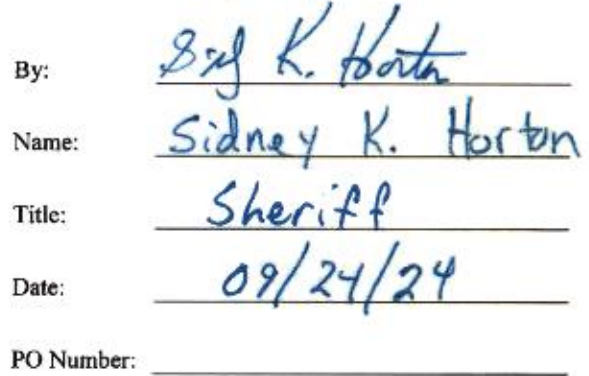 By: Sid K. Horton
Name: Sidney K. Horton
Title: Sheriff
Date: 09/24/24
PO Number: